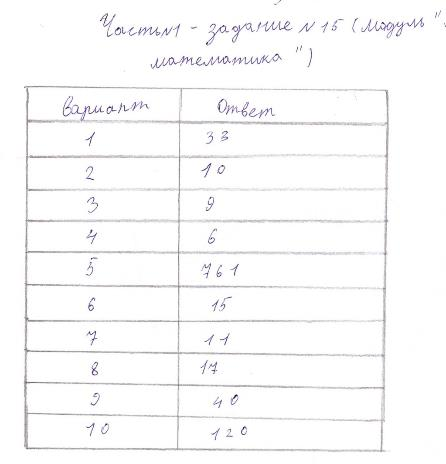 Часть №1 - задание №15 (модуль "
математика")
Вариант Ответ
1 33
2 10
3 9
4 6
5 761
6 15
7 11
8 17
9 40
10 120